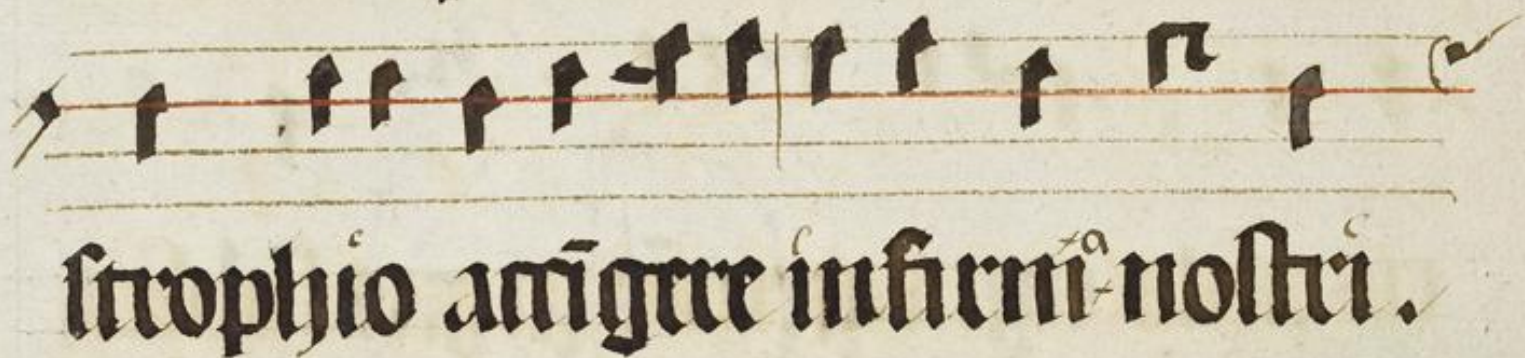 ſtrophio accīgere infirmᷓ noſtri.